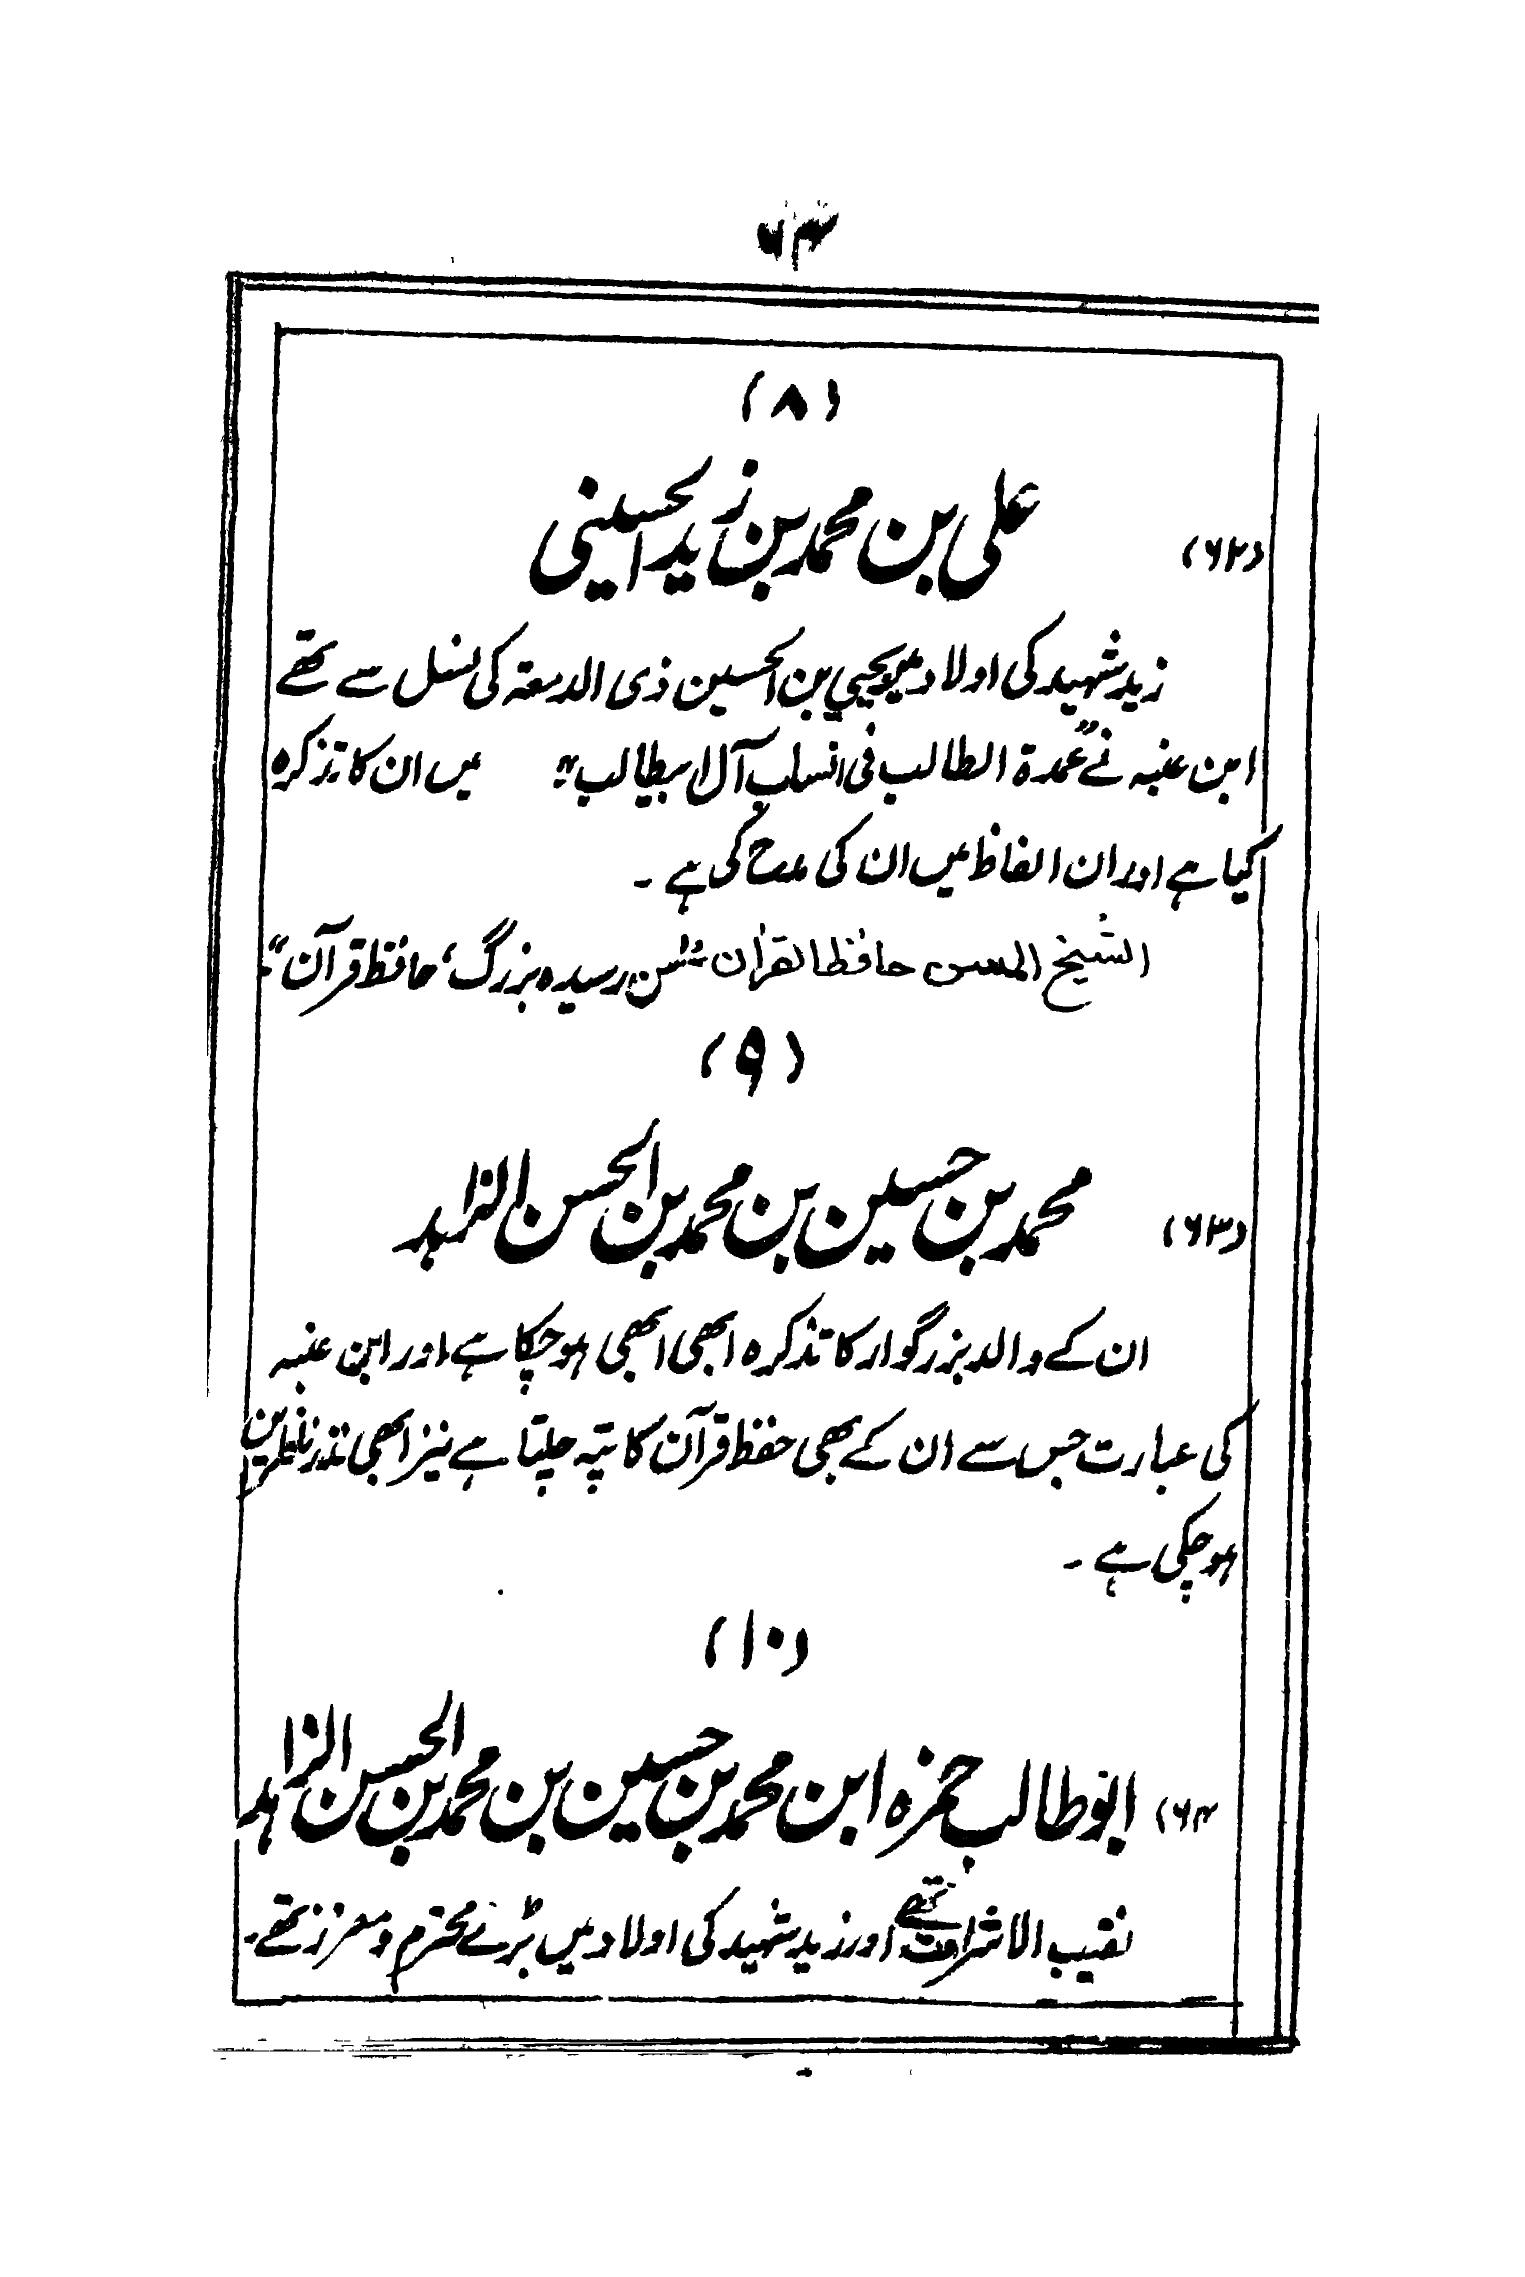 ۶۴
(۸)
(۶۲) علی بن محمد بن زید الحسینی
زید شہید کی اولاد میں یحییٰ بن الحسین ذی الدمعہ کی نسل سے تھے
ابن عنبہ نے "عمدۃ الطالب فی انساب آل ابیطالب" میں ان کا تذکرہ
کیا ہے اور ان الفاظ میں ان کی مدح کی ہے ۔
الشیخ المسن حافظ القرآن "سن رسیدہ بزرگ، حافظ قرآن"
(۹)
(۶۳) محمد بن حسین بن محمد بن الحسن الزاہد
ان کے والد بزرگوار کا تذکرہ ابھی ابھی ہو چکا ہے اور ابن عنبہ
کی عبارت جس سے ان کے بھی حفظ قرآن کا پتہ چلتا ہے نیز ابھی نذر ناظرین
ہو چکی ہے ۔
(۱۰)
۶۴) ابو طالب حمزہ ابن محمد بن حسین بن محمد بن الحسن الزاہد
نقیب الاشراف تھے اور زید شہید کی اولاد میں بڑے محترم و معزز تھے۔